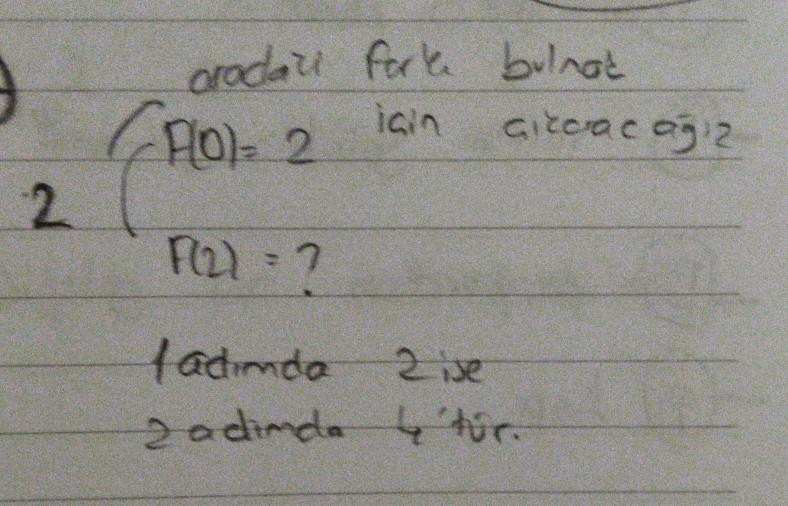 aradaki farkı bulmak
F(0) = 2 için çıkaracağız
2
F(2) = ?
1 adımda 2 ise
2 adımda 4'tür.